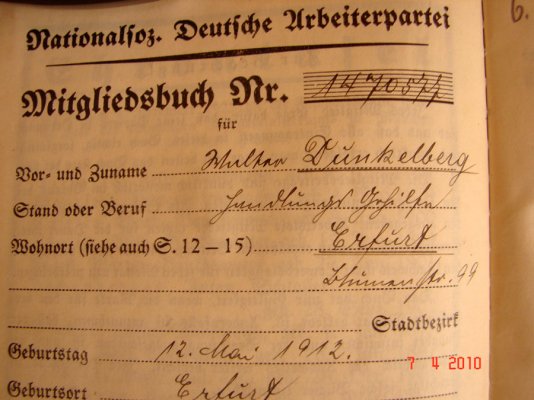 6.
Nationalsoz. Deutsche Arbeiterpartei
Mitgliedsbuch Nr. 1470577
für
Vor- und Zuname Walter Dunkelberg
Stand oder Beruf Handlungs Gehilfe
Wohnort (siehe auch S. 12–15) Erfurt
Blumenstr. 99
Stadtbezirk
Geburtstag 12. Mai 1912.
Geburtsort Erfurt
7 4 2010